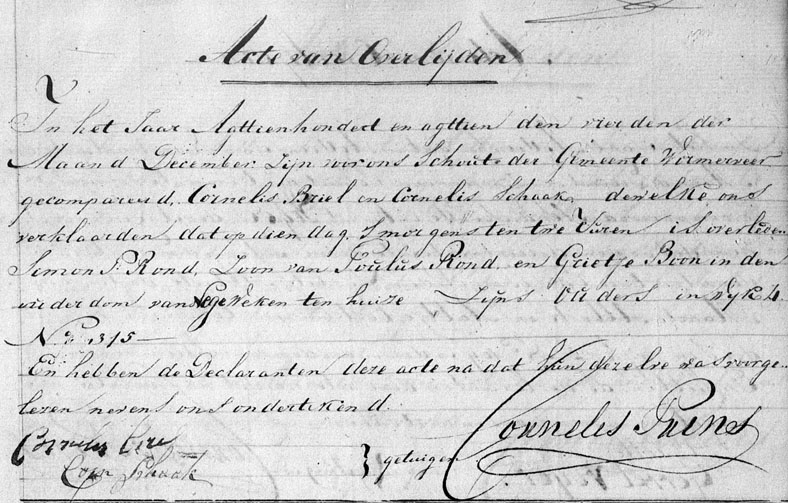 Acte van Overlijden
In het Jaar Agttienhondert en agttien den vierden der
Maand December Zijn voor ons Schout der Gemeente Wormerveer
gecompareerd, Cornelis Briel en Cornelis Schaak, dewelke ons
verklaarden dat op dien dag Smorgens ten twe Uuren is overleden
Simon P. Rond, Zoon van Poulus Rond, en Grietje Boon in den
ouderdom van Nege Weken ten huize Zijns Ouders in Wyk 4
No 315 —
En hebben de Declaranten deze acte na dat hun dezelve was voorge-
lezen nevens ons ondertekend.
Cornelis
Corn Schaak
} getuigen
Cornelis